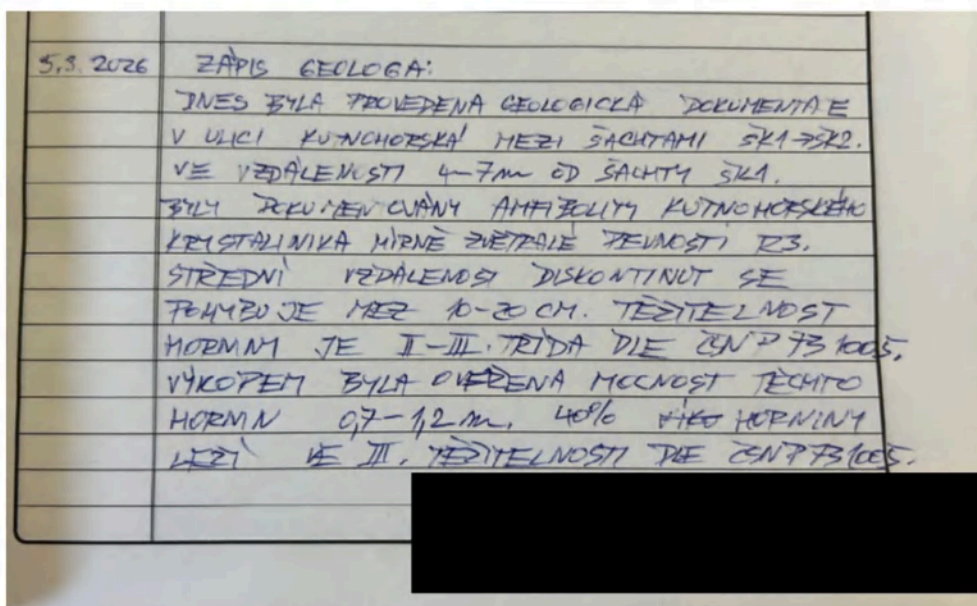 5.3.2026 ZÁPIS GEOLOGA:
DNES BYLA PROVEDENA GEOLOGICKÁ DOKUMENTAE
V ULICI KUTNOHORSKÁ MEZI ŠACHTAMI ŠK1→ŠK2.
VE VZDÁLENOSTI 4-7m OD ŠACHTY ŠK1.
BYLY DOKUMENTOVÁNY AMFIBOLITY KUTNOHORSKÉHO
KRYSTALINIKA MÍRNĚ ZVĚTRALÉ PEVNOSTI R3.
STŘEDNÍ VZDÁLENOST DISKONTINUT SE
POHYBUJE MEZ 10-20 CM. TĚŽITELNOST
HORNIN JE II-III. TŘÍDA DLE ČSN P 73 1005.
VÝKOPEM BYLA OVĚŘENA MOCNOST TĚCHTO
HORNIN 0,7-1,2 m. 40% HORNINY
LEŽÍ VE III. TĚŽITELNOSTI DLE ČSN P 73 1005.